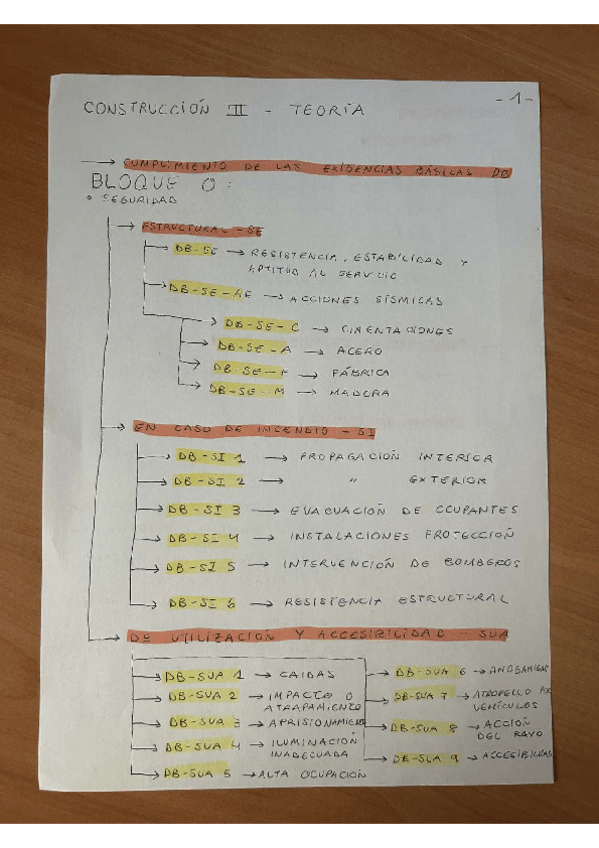 CONSTRUCCIÓN III - TEORÍA
- 1 -
→ CUMPLIMIENTO DE LAS EXIGENCIAS BÁSICAS DB
BLOQUE 0:
• SEGURIDAD
→ ESTRUCTURAL - SE
→ DB-SE → RESISTENCIA, ESTABILIDAD Y
APTITUD AL SERVICIO
→ DB-SE-AE → ACCIONES SÍSMICAS
→ DB-SE-C → CIMENTACIONES
→ DB-SE-A → ACERO
→ DB-SE-F → FÁBRICA
→ DB-SE-M → MADERA
→ EN CASO DE INCENDIO - SI
→ DB-SI 1 → PROPAGACIÓN INTERIOR
→ DB-SI 2 → " EXTERIOR
→ DB-SI 3 → EVACUACIÓN DE OCUPANTES
→ DB-SI 4 → INSTALACIONES PROTECCIÓN
→ DB-SI 5 → INTERVENCIÓN DE BOMBEROS
→ DB-SI 6 → RESISTENCIA ESTRUCTURAL
→ DE UTILIZACIÓN Y ACCESIBILIDAD - SUA
→ DB-SUA 1 → CAIDAS
→ DB-SUA 2 → IMPACTO O
ATRAPAMIENTO
→ DB-SUA 3 → APRISIONAMIENTO
→ DB-SUA 4 → ILUMINACIÓN
INADECUADA
→ DB-SUA 5 → ALTA OCUPACIÓN
→ DB-SUA 6 →
→ DB-SUA 7 → ATROPELLO POR
VEHÍCULOS
→ DB-SUA 8 → ACCIÓN
DEL RAYO
→ DB-SUA 9 → ACCESIBILIDAD